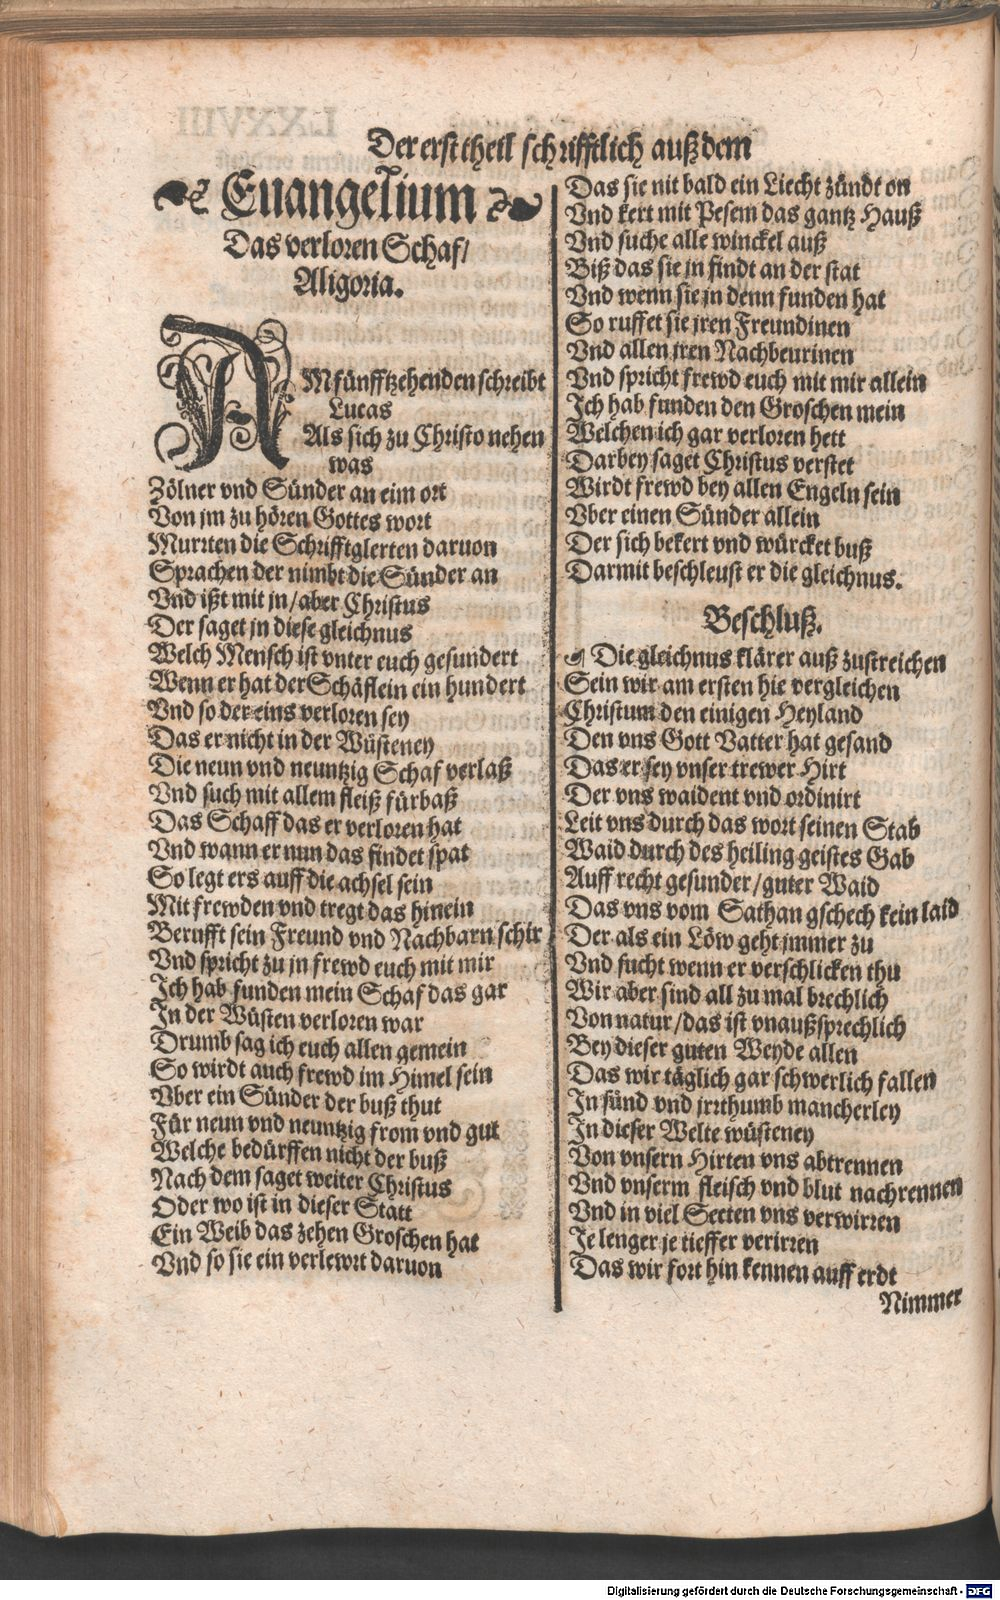 Der erst theil schrifftlich auß dem
Euangelium
Das verloren Schaf/
Aligoria.
AM fünfftzehenden schreibt
Lucas
Als sich zu Christo nehen
was
Zölner vnd Sünder an eim ort
Von jm zu hören Gottes wort
Murrten die Schrifftglerten daruon
Sprachen der nimbt die Sünder an
Vnd ißt mit jn/aber Christus
Der saget jn diese gleichnus
Welch Mensch ist vnter euch gesundert
Wenn er hat der Schäflein ein hundert
Vnd so der eins verloren sey
Das er nicht in der Wüsteney
Die neun vnd neuntzig Schaf verlaß
Vnd such mit allem fleiß fürbaß
Das Schaff das er verloren hat
Vnd wann er nun das findet spat
So legt ers auff die achsel sein
Mit frewden vnd tregt das hinein
Berufft sein Freund vnd Nachbarn schir
Vnd spricht zu jn frewd euch mit mir
Ich hab funden mein Schaf das gar
In der Wüsten verloren war
Drumb sag ich euch allen gemein
So wirdt auch frewd im Himel sein
Vber ein Sünder der buß thut
Für neun vnd neuntzig from vnd gut
Welche bedürffen nicht der buß
Nach dem saget weiter Christus
Oder wo ist in dieser Statt
Ein Weib das zehen Groschen hat
Vnd so sie ein verlewrt daruon
Das sie nit bald ein Liecht zündt on
Vnd kert mit Pesem das gantz Hauß
Vnd suche alle winckel auß
Biß das sie jn findt an der stat
Vnd wenn sie jn denn funden hat
So ruffet sie jren Freundinen
Vnd allen jren Nachbeurinen
Vnd spricht frewd euch mit mir allein
Ich hab funden den Groschen mein
Welchen ich gar verloren hett
Darbey saget Christus verstet
Wirdt frewd bey allen Engeln sein
Vber einen Sünder allein
Der sich bekert vnd würcket buß
Darmit beschleust er die gleichnus.
Beschluß.
Die gleichnus klärer auß zustreichen
Sein wir am ersten hie vergleichen
Christum den einigen Heyland
Den vns Gott Vatter hat gesand
Das er sey vnser trewer Hirt
Der vns waident vnd ordinirt
Leit vns durch das wort seinen Stab
Waid durch des heiling geistes Gab
Auff recht gesunder/guter Waid
Das vns vom Sathan gschech kein laid
Der als ein Löw geht jmmer zu
Vnd sucht wenn er verschlicken thu
Wir aber sind all zu mal brechlich
Von natur/das ist vnaußsprechlich
Bey dieser guten Weyde allen
Das wir täglich gar schwerlich fallen
In sünd vnd jrrthumb mancherley
In dieser Welte wüsteney
Von vnsern Hirten vns abtrennen
Vnd vnserm fleisch vnd blut nachrennen
Vnd in viel Secten vns verwirren
Je lenger je tieffer verirren
Das wir fort hin kennen auff erdt
Nimmer
Digitalisierung gefördert durch die Deutsche Forschungsgemeinschaft - DFG